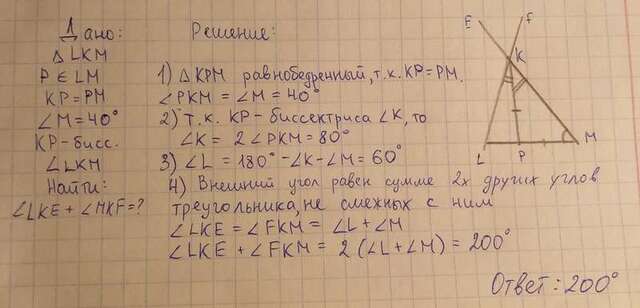 Дано:
△ LKM
P ∈ LM
KP = PM
∠M = 40°
KP - бисс.
∠LKM
Найти:
∠LKE + ∠MKF = ?
Решение:
1) △ KPM равнобедренный, т.к. KP = PM.
∠PKM = ∠M = 40°
2) Т.к. KP - биссектриса ∠K, то
∠K = 2 ∠PKM = 80°
3) ∠L = 180° - ∠K - ∠M = 60°
4) Внешний угол равен сумме 2х других углов
треугольника, не смежных с ним
∠LKE = ∠FKM = ∠L + ∠M
∠LKE + ∠FKM = 2 (∠L + ∠M) = 200°
Ответ: 200°
E F
K
L P M